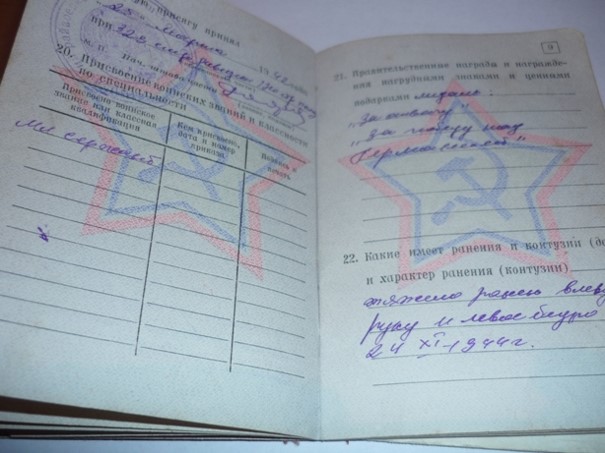 ую присягу принял
25 " марта 1942 года
при 328 стр. дивизии
М. П. Нач.
20. Присвоение воинских званий и классности
по специальности
Присвоено воинское
звание или классная
квалификация
Кем присвоено,
дата и номер
приказа
Подпись и
печать
Мл сержант
9
21. Правительственные награды и награжде-
ния нагрудными знаками и ценными
подарками медаль:
„За отвагу"
„За победу над
Германией"
22. Какие имеет ранения и контузии (да
и характер ранения (контузии)
тяжело ранен в леву
руку и левое бедро
24 XI 1944 г.